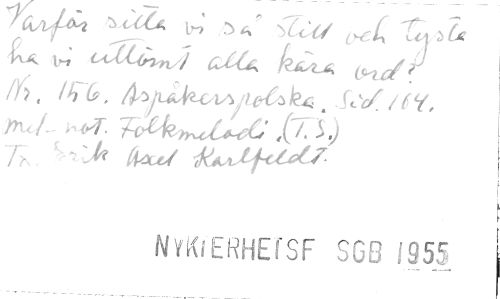 Varför sitta vi så still och tysta
ha vi uttömt alla kära ord?
Nr. 156. Aspåkerspolska. Sid. 164.
mel-not. Folkmelodi. (T.S.)
Tr. Erik Axel Karlfeldt.
NYKIERHEISF SGB 1955